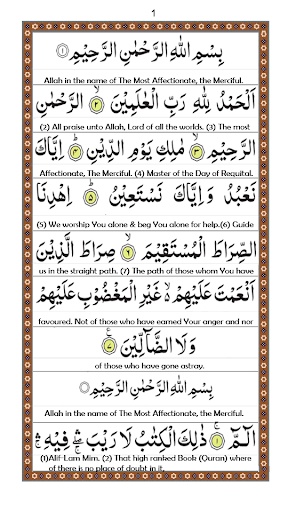 1
بِسْمِ اللّٰهِ الرَّحْمٰنِ الرَّحِيْمِ ۝۱
Allah in the name of The Most Affectionate, the Merciful.
اَلْحَمْدُ لِلّٰهِ رَبِّ الْعٰلَمِيْنَ ۝۲ الرَّحْمٰنِ
(2) All praise unto Allah, Lord of all the worlds. (3) The most
الرَّحِيْمِ ۝۳ مٰلِكِ يَوْمِ الدِّيْنِ ۝۴ اِيَّاكَ
Affectionate, The Merciful. (4) Master of the Day of Requital.
نَعْبُدُ وَاِيَّاكَ نَسْتَعِيْنُ ۝۵ اِهْدِنَا
(5) We worship You alone & beg You alone for help.(6) Guide
الصِّرَاطَ الْمُسْتَقِيْمَ ۝۶ صِرَاطَ الَّذِيْنَ
us in the straight path. (7) The path of those whom You have
اَنْعَمْتَ عَلَيْهِمْ ۙ غَيْرِ الْمَغْضُوْبِ عَلَيْهِمْ
favoured. Not of those who have earned Your anger and nor
وَلَا الضَّآلِّيْنَ ۝۷
of those who have gone astray.
بِسْمِ اللّٰهِ الرَّحْمٰنِ الرَّحِيْمِ
Allah in the name of The Most Affectionate, the Merciful.
الٓمّٓ ۝۱ ذٰلِكَ الْكِتٰبُ لَا رَيْبَ ۛ فِيْهِ ۛ
(1)Alif-Lam Mim. (2) That high ranked Book (Quran) where
of there is no place of doubt in it,